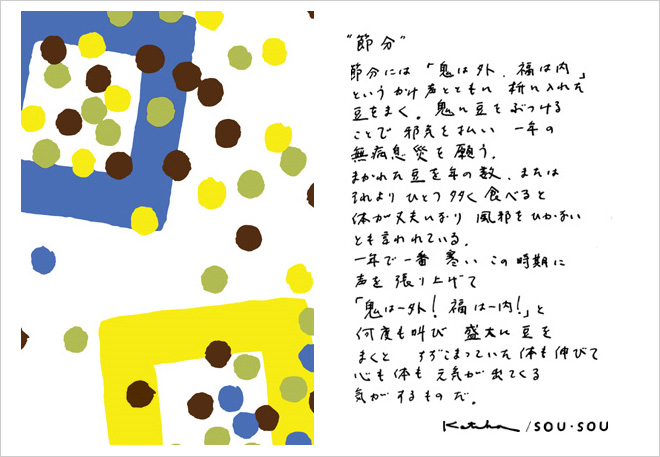 “節分”
節分には「鬼は外、福は内」
というかけ声とともに 枡に入れた
豆をまく。鬼に豆をぶつける
ことで 邪気を払い 一年の
無病息災を願う。
まかれた豆を年の数、または
それより ひとつ多く食べると
体が丈夫になり 風邪をひかない
とも言われている。
一年で一番 寒い この時期に
声を張り上げて
「鬼は一外! 福は一内!」と
何度も叫び 盛大に豆を
まくと ちぢこまっていた体も伸びて
心も体も 元気が出てくる
気がするものだ。
/SOU・SOU